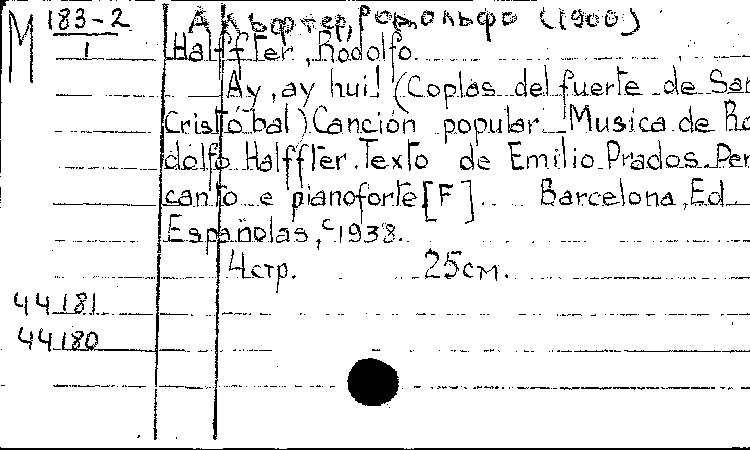 M 183-2
1
Альфтер, Родольфо (1900)
Halffter, Rodolfo.
Ay, ay hui! (Coplas del fuerte de San
Cristóbal) Canción popular. Musica de Ro
dolfo Halffter. Texto de Emilio Prados. Per
canto e pianoforte [F]. Barcelona, Ed.
Españolas, c1938.
4стр. 25см.
44181
44180